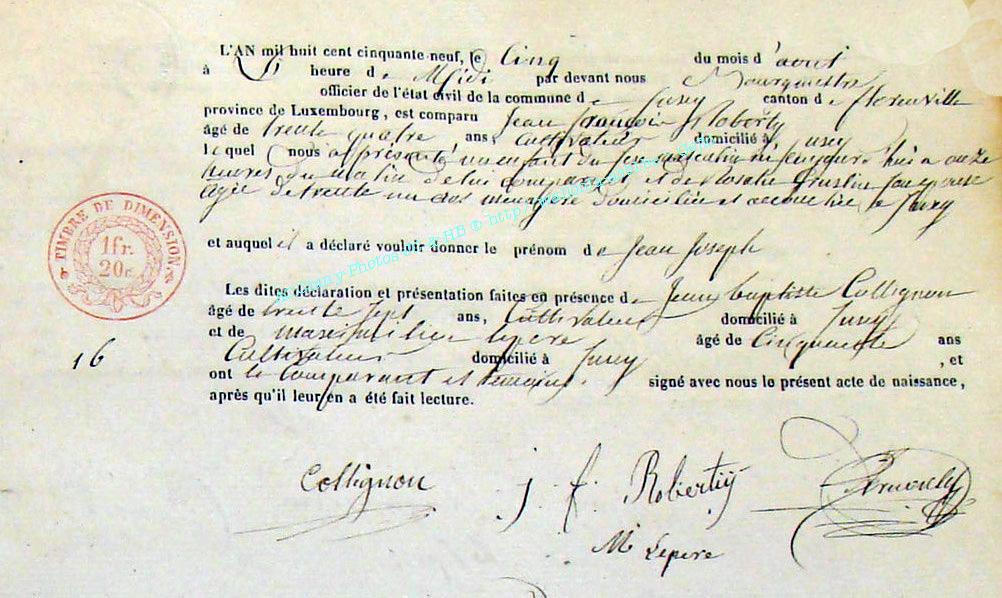 L'AN mil huit cent cinquante-neuf, le Cinq du mois d'août
à heure de Midi par devant nous Bourgmestre
officier de l'état civil de la commune de Jusey canton de florenville
province de Luxembourg, est comparu Jean françois Roberty
âgé de trente quatre ans, Cultivateur domicilié à Jusey
lequel nous a présenté un enfant du sexe masculin né aujourd'hui a onze
heures du matin de lui comparant et de Rosalie son epouse
agée de trente un ans menagere domiciliée et à Jusey
et auquel il a déclaré vouloir donner le prénom de Jean Joseph
Les dites déclaration et présentation faites en présence de Jean baptiste Collignon
âgé de trente sept ans, Cultivateur domicilié à Jusey
et de maximilien lepere âgé de Cinquante ans
Cultivateur domicilié à Jusey, et
ont le Comparant et temoins signé avec nous le présent acte de naissance,
après qu'il leur en a été fait lecture.
TIMBRE DE DIMENSION
1 fr.
20 c.
16
Collignon
j f Roberty
M Lepere